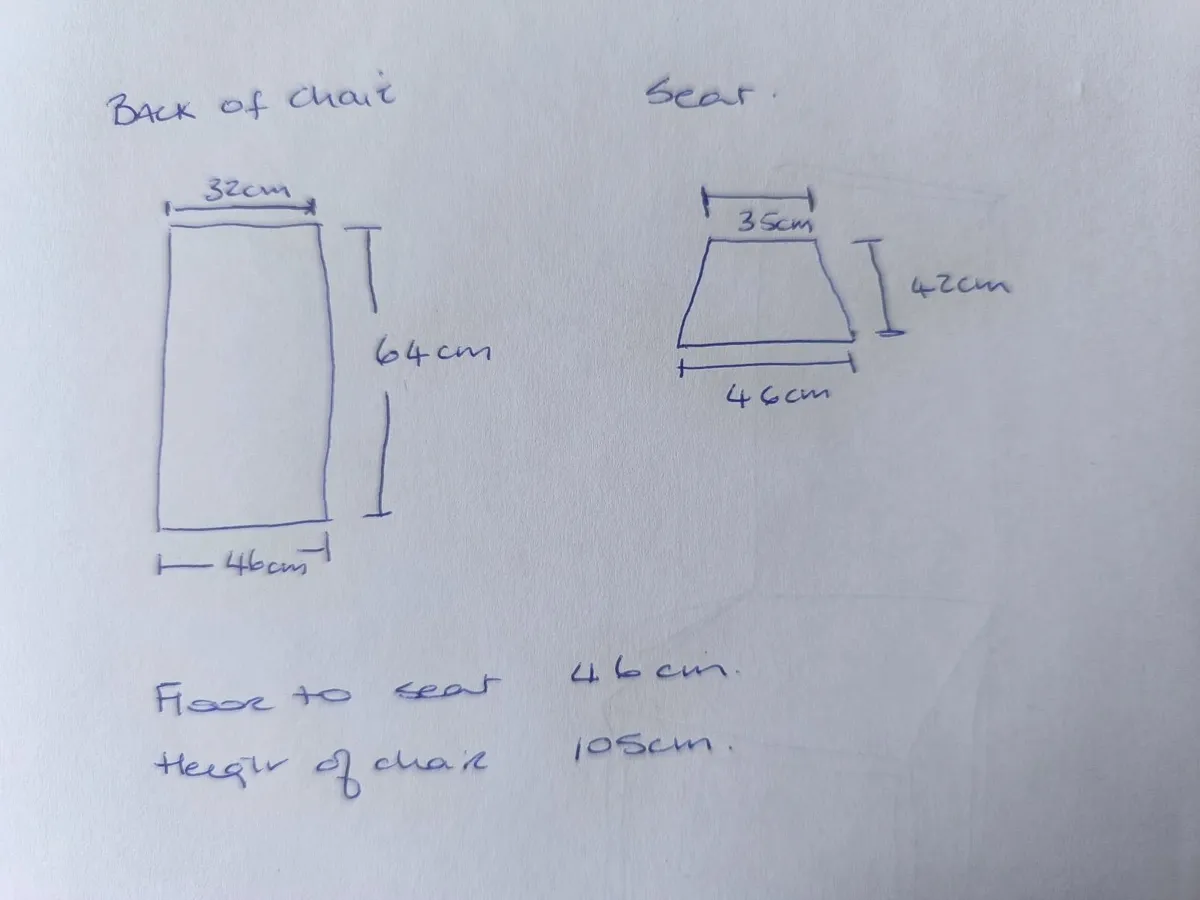 BACK of chair
Seat.
32cm
35cm
42cm
64cm
46cm
46cm
Floor to seat 46cm.
Height of chair 105cm.